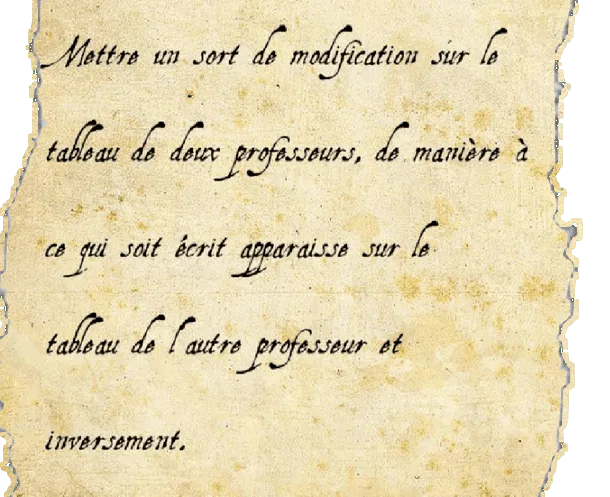 Mettre un sort de modification sur le
tableau de deux professeurs, de manière à
ce qui soit écrit apparaisse sur le
tableau de l autre professeur et
inversement.